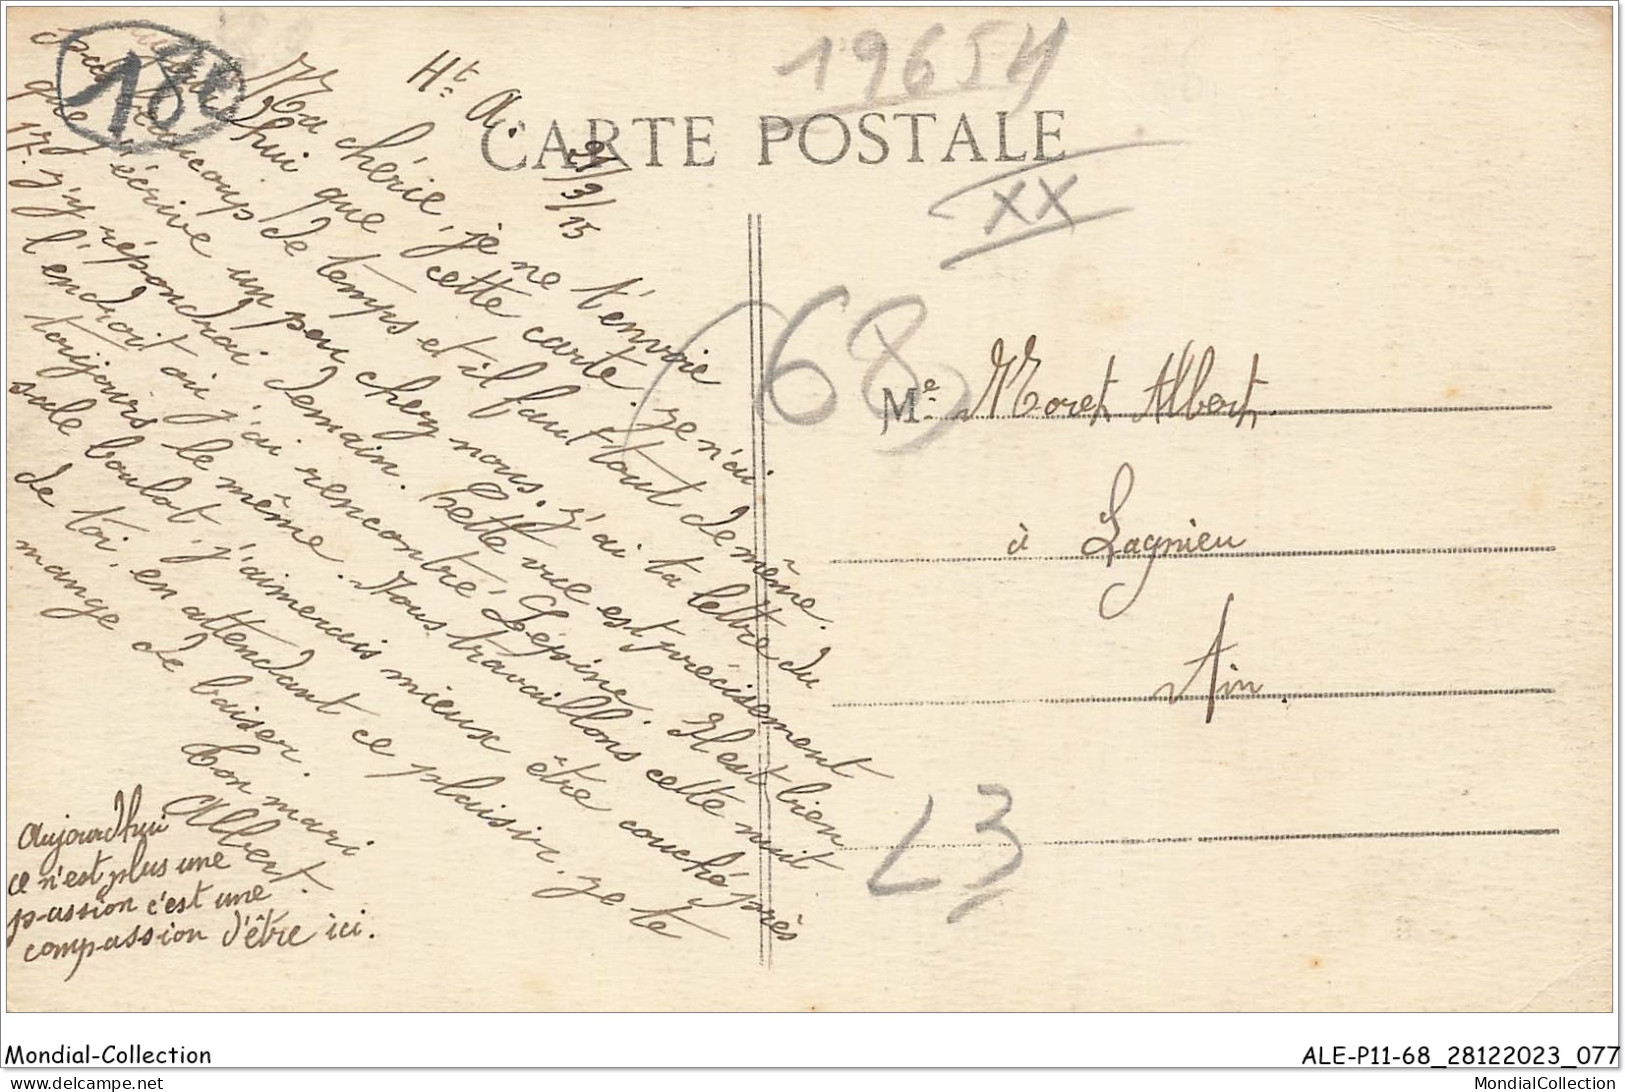 18e
19654
Ht. A. 21/9/15
CARTE POSTALE
XX
(68)
Ma chérie, je ne t'envoie
aujourd'hui que cette carte. Je n'ai
pas beaucoup de temps et il faut tout de même
que j'écrive un peu chez nous. J'ai ta lettre du
17. J'y répondrai demain. Cette vue est précisement
l'endroit où j'ai rencontré Lépine. Il est bien
toujours le même. Nous travaillons cette nuit
sale boulot, j'aimerais mieux être couché près
de toi, en attendant ce plaisir. Je te
mange de baiser.
Ton mari
Albert.
Aujourd'hui
ce n'est plus une
passion c'est une
compassion d'être ici.
Me Moret Albert.
à Lagnieu
Ain.
L3
Mondial-Collection
ALE-P11-68_28122023_077
www.delcampe.net
MondialCollection